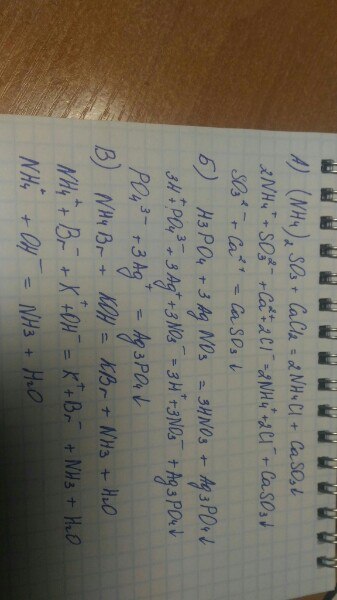 А) (NH4)2SO3 + CaCl2 = 2NH4Cl + CaSO3↓
2NH4⁺ + SO3²⁻ + Ca²⁺ + 2Cl⁻ = 2NH4⁺ + 2Cl⁻ + CaSO3↓
SO3²⁻ + Ca²⁺ = CaSO3↓
Б) H3PO4 + 3AgNO3 = 3HNO3 + Ag3PO4↓
3H⁺ + PO4³⁻ + 3Ag⁺ + 3NO3⁻ = 3H⁺ + 3NO3⁻ + Ag3PO4↓
PO4³⁻ + 3Ag⁺ = Ag3PO4↓
В) NH4Br + KOH = KBr + NH3 + H2O
NH4⁺ + Br⁻ + K⁺ + OH⁻ = K⁺ + Br⁻ + NH3 + H2O
NH4⁺ + OH⁻ = NH3 + H2O